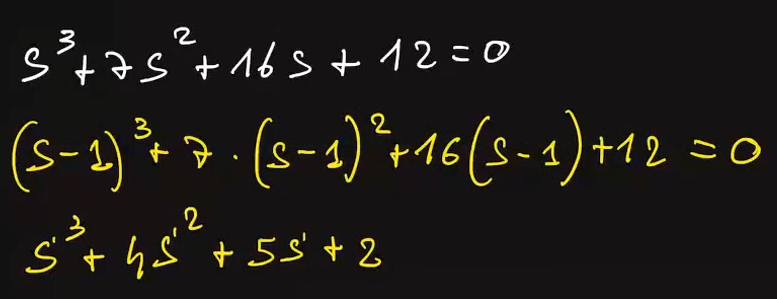 s³+7s²+16s+12=0
(s-1)³+7·(s-1)²+16(s-1)+12=0
s³+4s²+5s+2